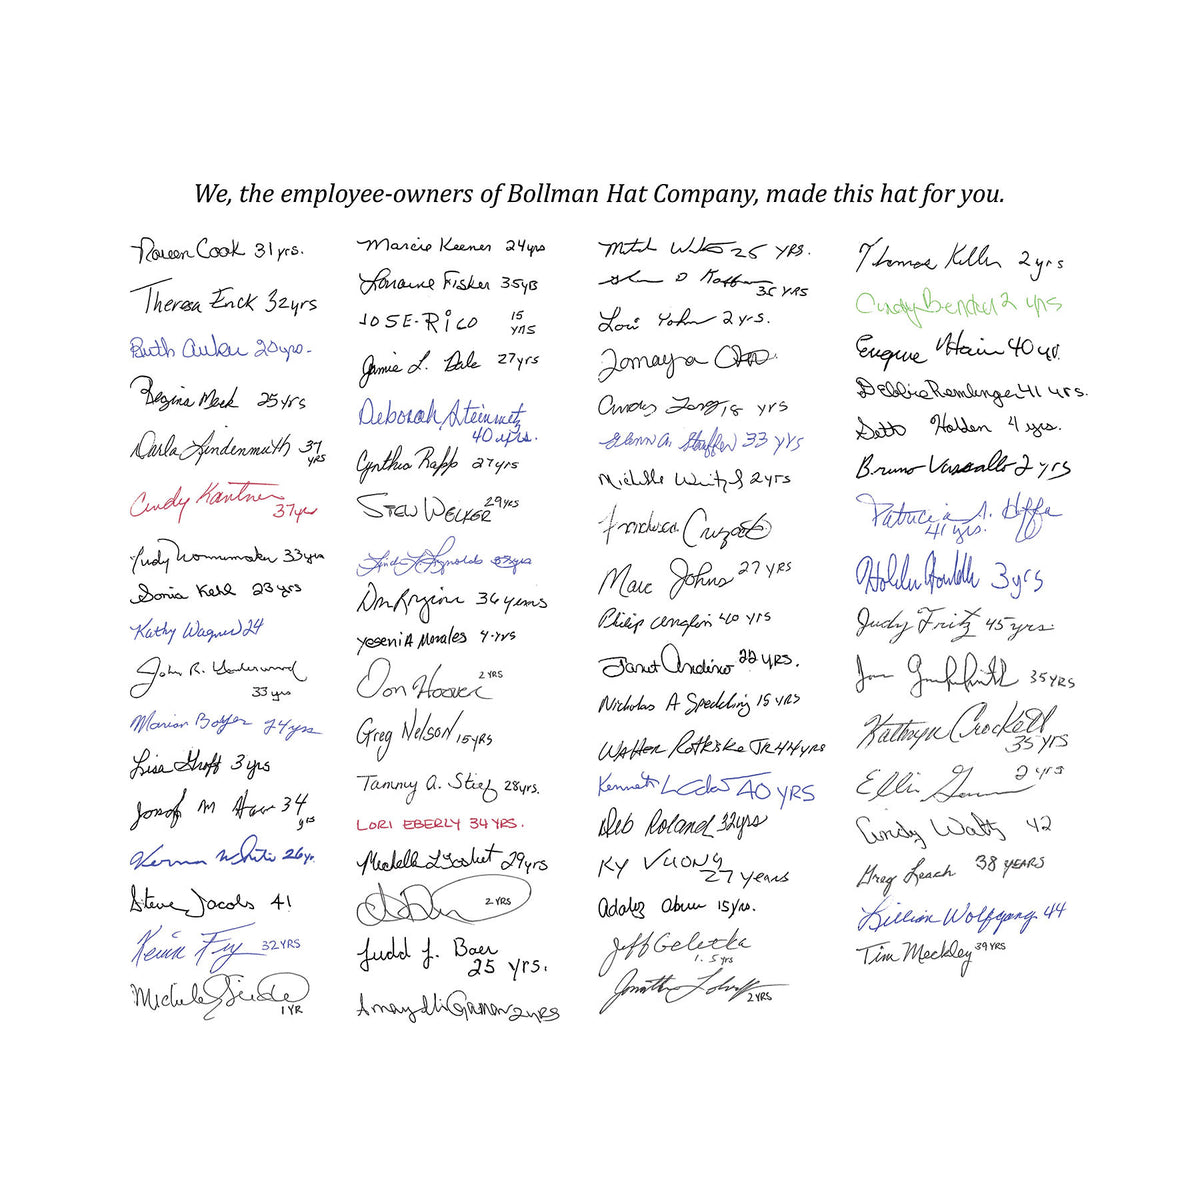 We, the employee-owners of Bollman Hat Company, made this hat for you.
Cook 31yrs.
Theresa Enck 32yrs
Ruth Auker 20yrs.
Regina Meck 25yrs
Darla Lindenmuth 37
YRS
Cindy Kantner
37yr
Judy 33yrs
Sonia Kehl 23yrs
Kathy Wagner 24
John R. Underwood
33yrs
Marian Boyer 24yrs
Lisa Groff 3yrs
Josef M 34
yrs
26yr.
Steve Jacobs 41
Kevin Fry 32YRS
Michele
1YR
Marcie Keener 24yrs
Lorraine Fisher 35yrs
JOSE-RiCO 15
yrs
Jamie L. Dale 27yrs
Deborah Steinmetz
40 yrs.
Cynthia Rapp 27yrs
STEW WELKER 29YRS
Linda L Reynolds 33yrs
36 years
YeseniA Morales 4-yrs
Don Hoover 2 YRS
Greg Nelson 15YRS
Tammy A. Stief 28yrs.
LORI EBERLY 34 YRS.
Michelle L 29yrs
2 YRS
Judd J. Baer
25 yrs.
2YRS
25 YRS.
35 YRS
Lori Yohn 2yrs.
Tomayra
Cindy 18 yrs
Glenn A. Stauffer 33 yrs
Michelle 2yrs
Francheska
Marc Johns 27 YRS
Philip 40 yrs
Janet Andino 22 YRS.
Nicholas A Speckling 15 YRS
Walter Rothiske JR 44 yrs
Kenneth 40 YRS
Deb Roland 32yrs
KY VUONG
27 years
15yrs.
Jeff Geletka
1.5yrs
Jonathan
2YRS
Thomas Keller 2yrs
Cindy Bender 2 yrs
Eugene Hain 40 yr.
Debbie Remlinger 41 yrs.
Seth Holden 4 yrs.
Bruno Vassallo 2 yrs
Patricia A. Hoffa
41 yrs.
3yrs
Judy Fritz 45yrs.
35YRS
Kathryn Crockett
35 YRS
2 yrs
Cindy Waltz 42
Greg Leach 38 YEARS
Lillian Wolfgang 44
Tim Meckley 39YRS